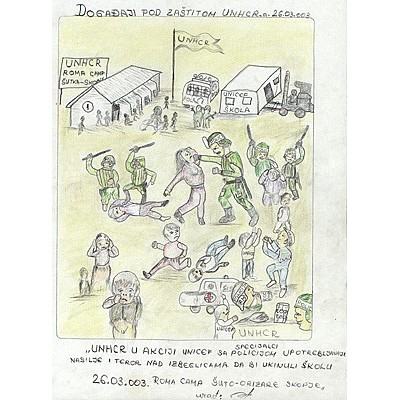 DOGAĐAJI POD ZAŠTITOM UNHCR.a. 26.03.003
UNHCR
UNHCR
ROMA CAMP
ŠUTKA-SKOPJE
POLICI
UNICEF
ŠKOLA
UNICEF
UNHCR
SPECIJALCI
„UNHCR U AKCIJI UNICEF SA POLICIJOM UPOTREBLJAVAJU
NASILJE I TEROR NAD IZBEGLICAMA DA BI UKINULI ŠKOLU
26.03.003. ROMA CAMA ŠUTO-ORIZARE SKOPJE,